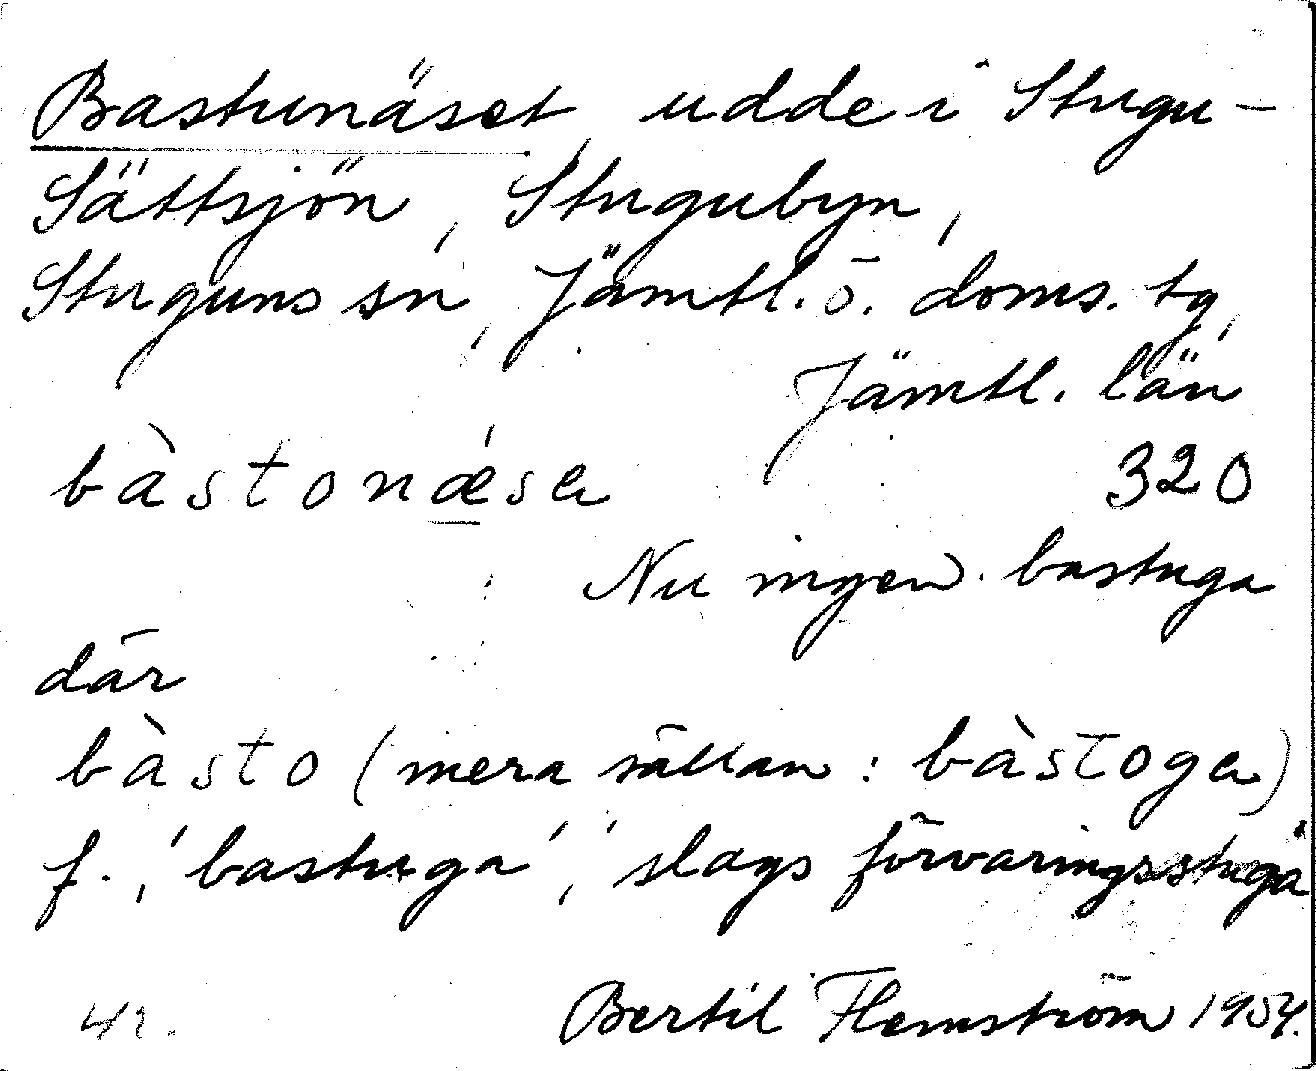 Bastunäset, udde i Stugu-
Sättsjön, Stugubyn,
Stuguns sn, Jämtl. ö. doms. tg,
Jämtl. län
bàstonǽsa 320
Nu ingen bastuga
där
bàsto (mera sällan: bàstoga)
f., 'bastuga', 'slags förvaringsstuga'
Bertil Flemström 1954.